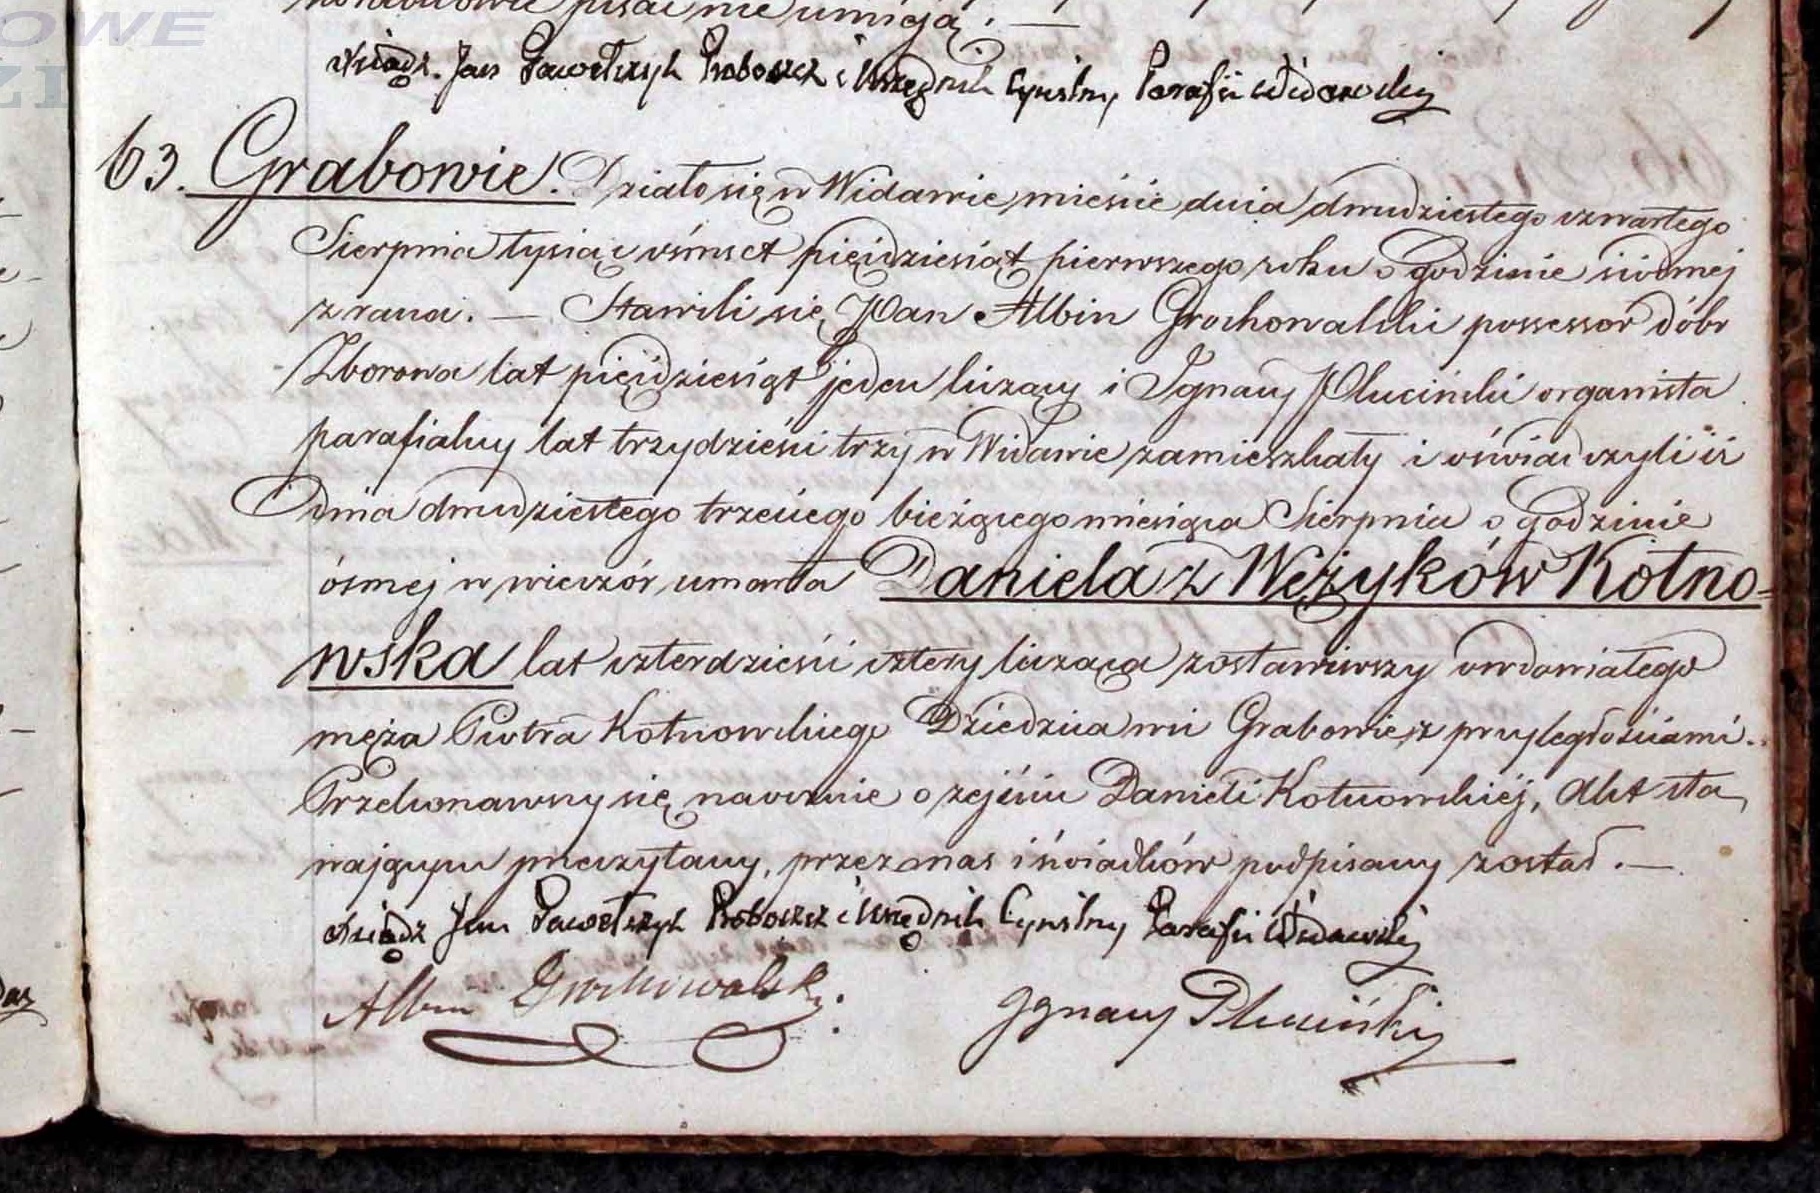 OWE
ZI
pisać nie umieją. —
Xsiądz Jan Pawełczyk Proboszcz i Urzędnik Cywilny Parafii Widawskiy
63. Grabowie. Działo się w Widawie mieście dnia dwudziestego czwartego
Sierpnia tysiąc ośmset pięćdziesiąt pierwszego roku o godzinie siódmej
z rana. — Stawili się Pan Albin Grochowalski possessor dóbr
Zborowa lat pięćdziesiąt jeden liczący i Ignacy Pluciński organista
parafialny lat trzydzieści trzy w Widawie zamieszkały i oświadczyli iż
dnia dwudziestego trzeciego bieżącego miesiąca Sierpnia o godzinie
ósmej w wieczór umarła Daniela z Wężyków Kotno=
wska lat czterdzieści cztery licząca zostawiwszy owdowiałego
męża Piotra Kotnowskiego Dziedzica wsi Grabowie z przyległościami.
Przekonawszy się naocznie o zejściu Danieli Kotnowskiéj, Akt sta
wającym przeczytany, przez nas i świadków podpisany został. —
Xsiądz Jan Pawełczyk Proboszcz i Urzędnik Cywilny Parafii Widawskiy
Albin Grochowalski
Ignacy Pluciński